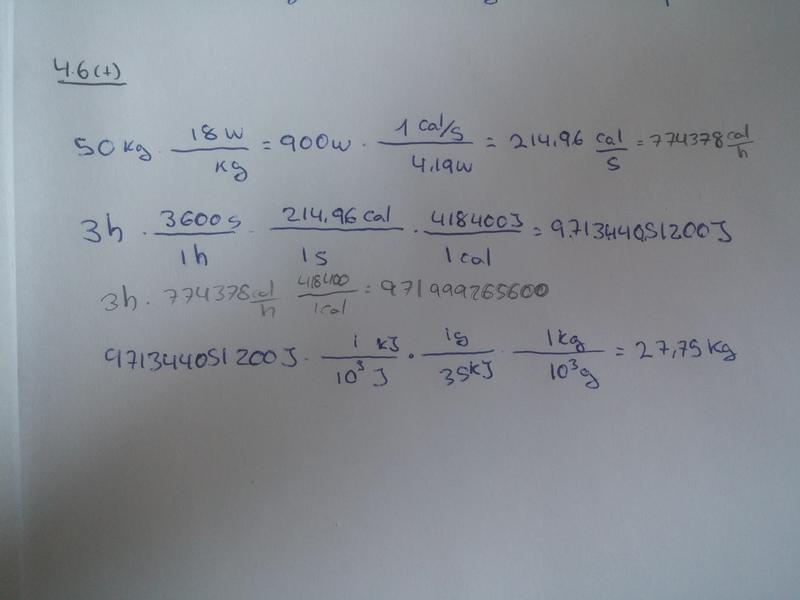 4.6(+)
50 kg · 18 w / kg = 900w · 1 cal/s / 4,19w = 214,96 cal / s = 774378 cal / h
3h · 3600s / 1h · 214,96 cal / 1s · 418400J / 1cal = 971344051200J
3h · 774378 cal / h 418400 / 1cal = 971999265600
971344051200J · 1 kJ / 10³ J · 1g / 35kJ · 1kg / 10³g = 27,75 kg